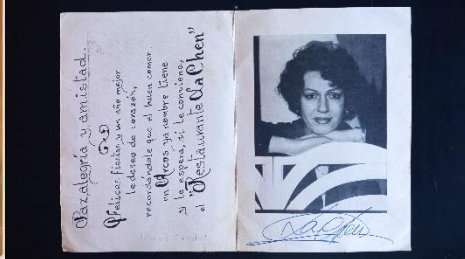 Paz alegría y amistad.
Felices fiestas y un año mejor
le deseo de corazón,
recordándole que el buen comer
en Arcos ya nombre tiene
y le espera, si le conviene,
el "Restaurante La Chen"